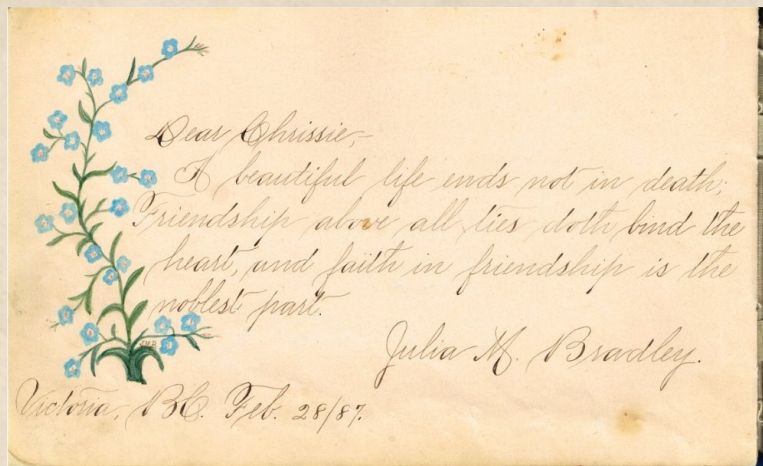 Dear Chrissie,-
A beautiful life ends not in death;
Friendship above all ties doth bind the
heart, and faith in friendship is the
noblest part.
Julia M. Bradley.
Victoria, BC. Feb. 28/87.